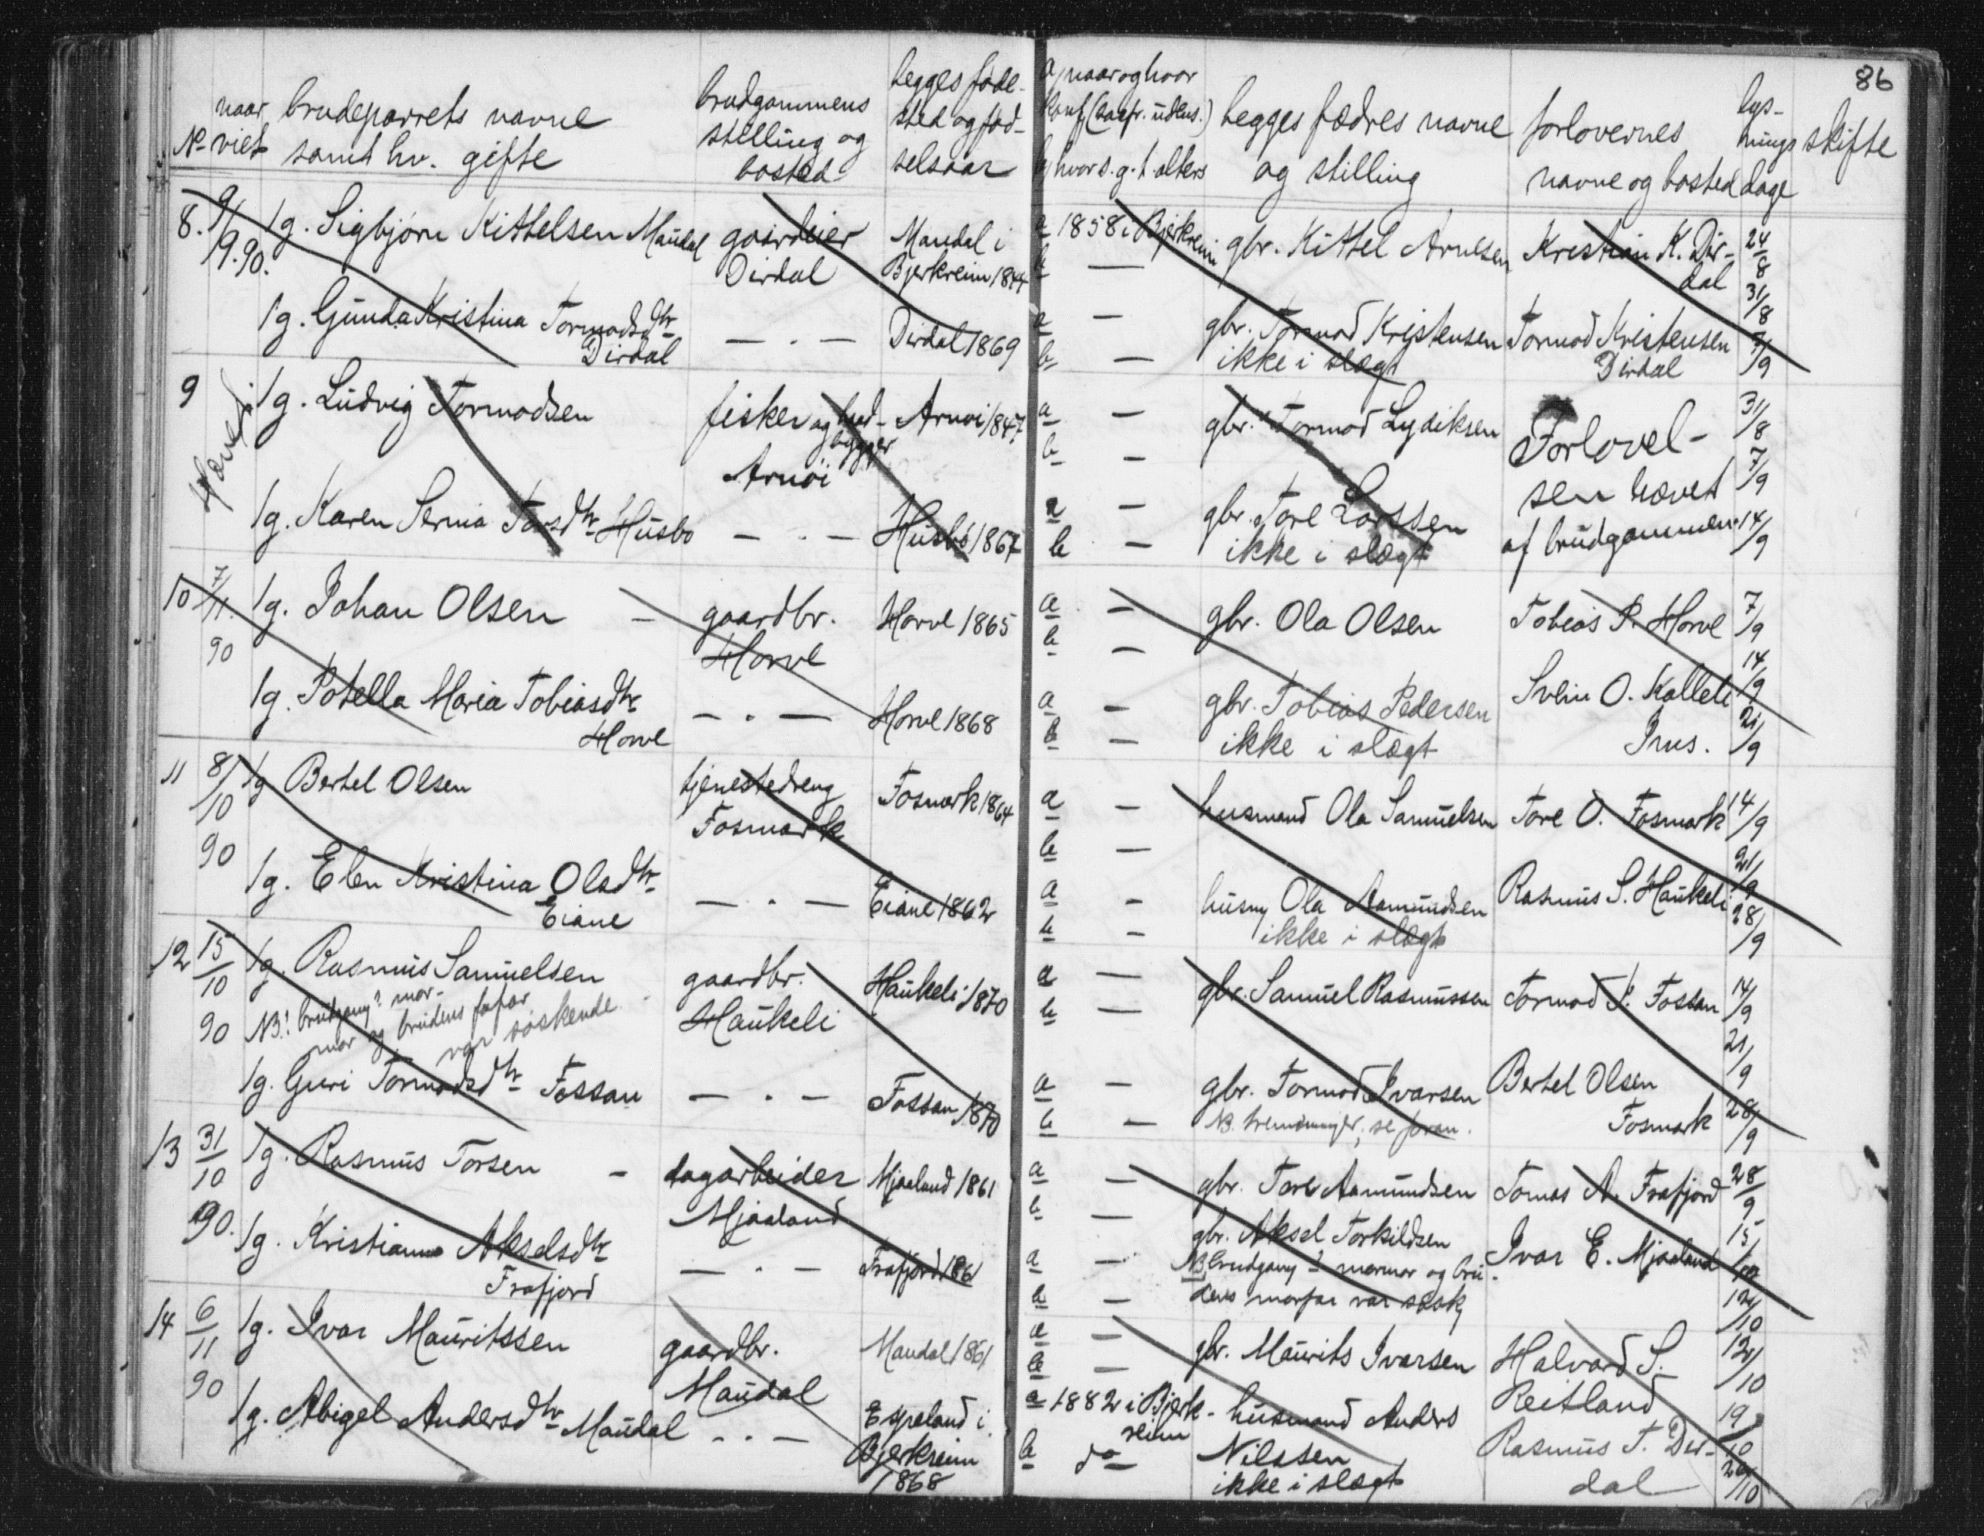 86
No naar viet
brudeparrets navne
samt hv. gifte
brudgommens
stilling og
bosted
begges føde-
sted og fød-
selsaar
a, naar og hvor
konf (saafr. udens.)
b, hvor s. g. t. alters
begges fædres navne
og stilling
forlovernes
navne og bosted
lys-
nings
dage
skifte
8. 9/9.90.
1g. Sigbjørn Kittelsen Maudal
gaardeier
Dirdal
Maudal i
Bjerkreim 1844
a 1858 i Bjerkreim
b —
gbr. Kittel Arnesen
Kristian K. Dir-
dal
24/8
31/8
7/9
1g. Gunda Kristina Tormodsdtr
Dirdal
— . —
Dirdal 1869
a —
b —
gbr. Tormod Kristensen
ikke i slægt
Tormod Kristensen
Dirdal
9
Hævet
1g. Ludvig Tormodsen
fisker og
bygger
Arnøi
Arnøi 1847
a —
b —
gbr. Tormod Lydiksen
Forlovel-
sen hævet
af brudgommen
31/8
7/9
14/9
1g. Karen Serina Torsdtr Husbø
— . —
Husbø 1867
a —
b —
gbr. Tore Larssen
ikke i slægt
10 7/11. 90
1g. Johan Olsen —
gaardbr.
Horve
Horve 1865
a —
b —
gbr. Ola Olsen
Tobias P. Horve
7/9
14/9
21/9
1g. Potella Maria Tobiasdtr
Horve
— . —
Horve 1868
a —
b —
gbr. Tobias Pedersen
ikke i slægt
Svein O. Kalleli
Jms.
11 8/10 90
1g Bertel Olsen
tjenestedreng
Fosmark
Fosmark 1864
a —
b —
husmand Ola Samuelsen
Tore O. Fosmark
14/9
21/9
28/9
1g. Elen Kristina Olsdtr
Eiane
— . —
Eiane 1862
a —
b —
husm Ola Aamundsen
ikke i slægt
Rasmus S. Haukeli
12 15/10 90
1g. Rasmus Samuelsen
NB! brudgoms mor-
mor og brudens farfar
var søskende
gaardbr.
Haukeli
Haukeli 1870
a —
b —
gbr. Samuel Rasmussen
Tormod I. Fossan
14/9
21/9
28/9
1g. Guri Tormodsdtr Fossan
— . —
Fossan 1870
a —
b —
gbr. Tormod Ivarsen
NB. tremenninger, se foran.
Bertel Olsen
Fosmark
13 31/10 90.
1g. Rasmus Torsen —
dagarbeider
Mjaaland
Mjaaland 1861
a —
b —
gbr. Tore Aamundsen
Tomas A. Frafjord
28/9
5/10
12/10
1g. Kristianne Akselsdtr
Frafjord
— . —
Frafjord 1861
a —
b —
gbr. Aksel Torkildsen
NB brudgoms mormor og bru-
dens morfar var søsk
Ivar E. Mjaaland
14 6/11 90
1g. Ivar Mauritssen
gaardbr.
Maudal
Maudal 1861
a —
b —
gbr. Maurits Ivarsen
Halvard S.
Reitland
12/10
19/10
26/10
1g. Abigel Andersdtr Maudal
— . —
Espeland i
Bjerkreim
1868
a 1882 i Bjerk-
reim
b do
husmand Anders
Nilssen
ikke i slægt
Rasmus T. Dir-
dal